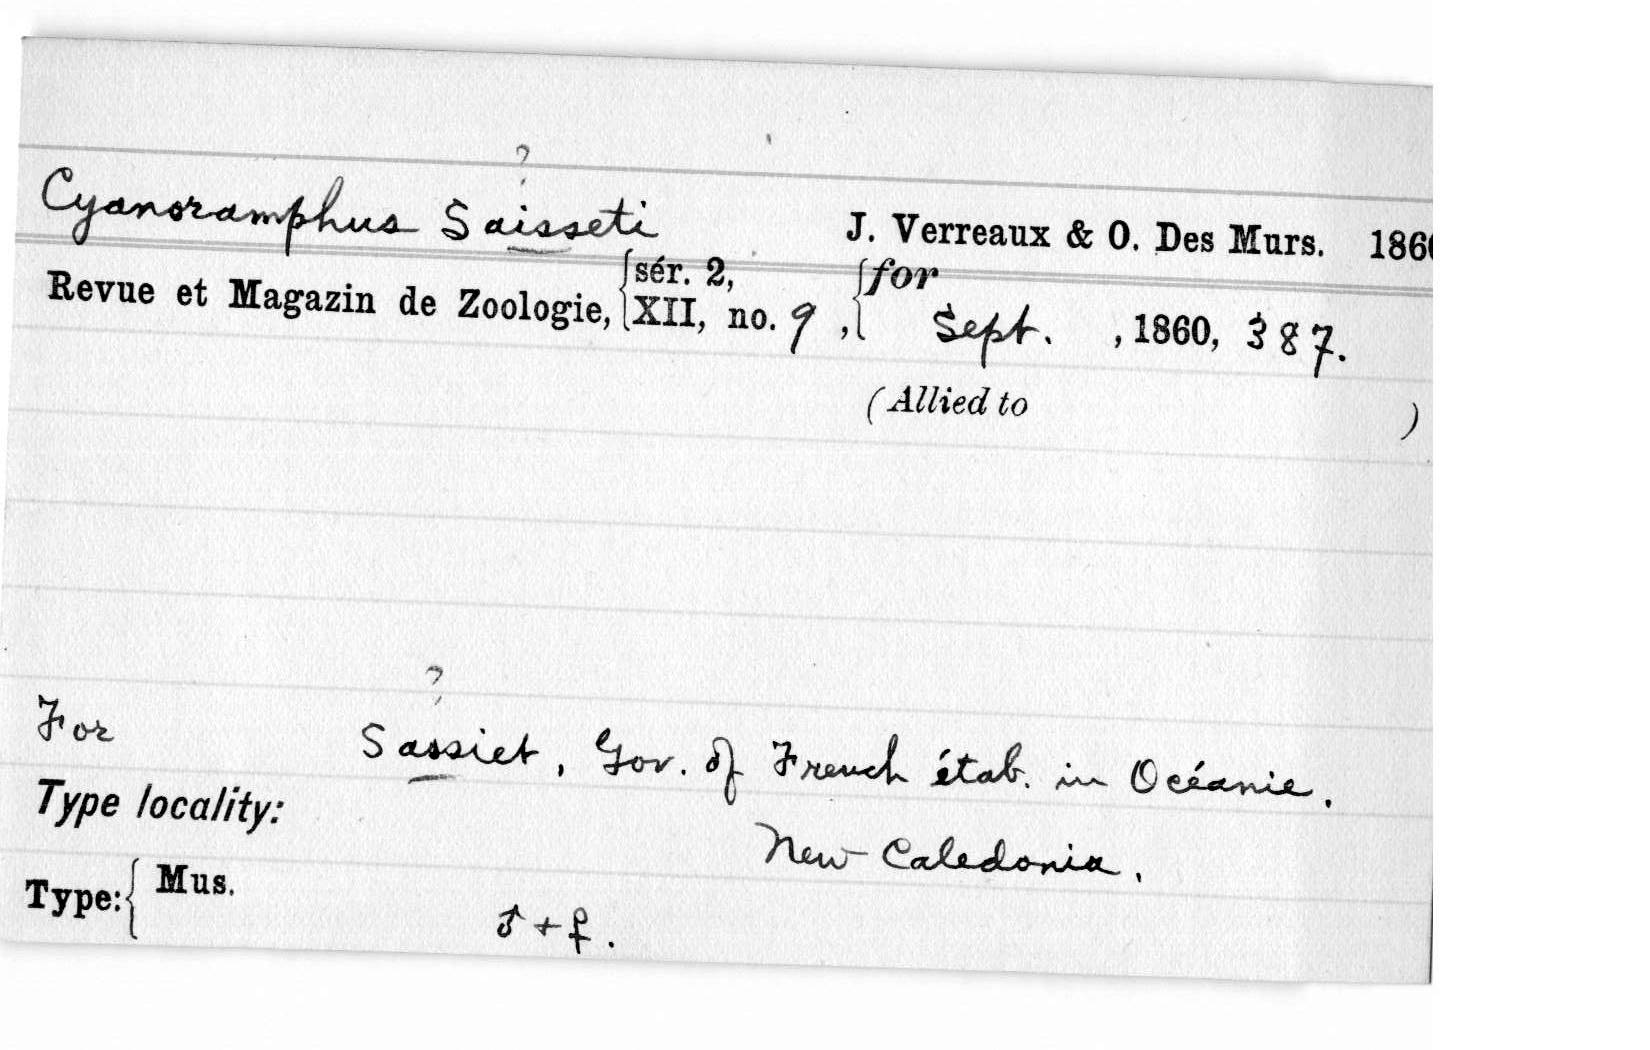 ?
Cyanoramphus Saisseti J. Verreaux & O. Des Murs. 1860
Revue et Magazin de Zoologie, {sér. 2, XII, no. 9, {for Sept., 1860, 387.
(Allied to )
?
For Sassiet, Gov. of French étab. in Océanie.
Type locality: New Caledonia.
Type: { Mus.
♂ + ♀.